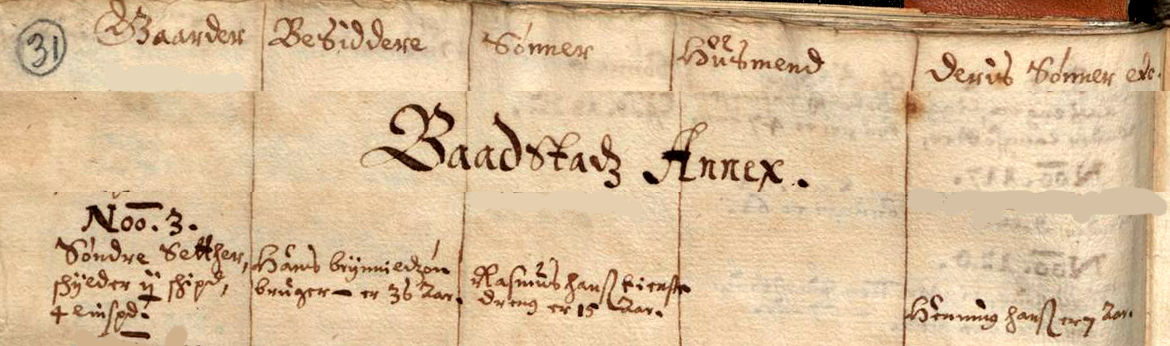 31
Gaarder Besiddere Sønner Huusmend Deris Sønner etc.
Baadstadz Annex.
Noo. 3.
Søndre Setther,
schylder ij shipd,
4 lispd:
Hans brynnieldzøn
bruger er 36 Aar.
Rasmus hanß tienste
dreng er 15 Aar.
Henning hanß er 7 Aar.